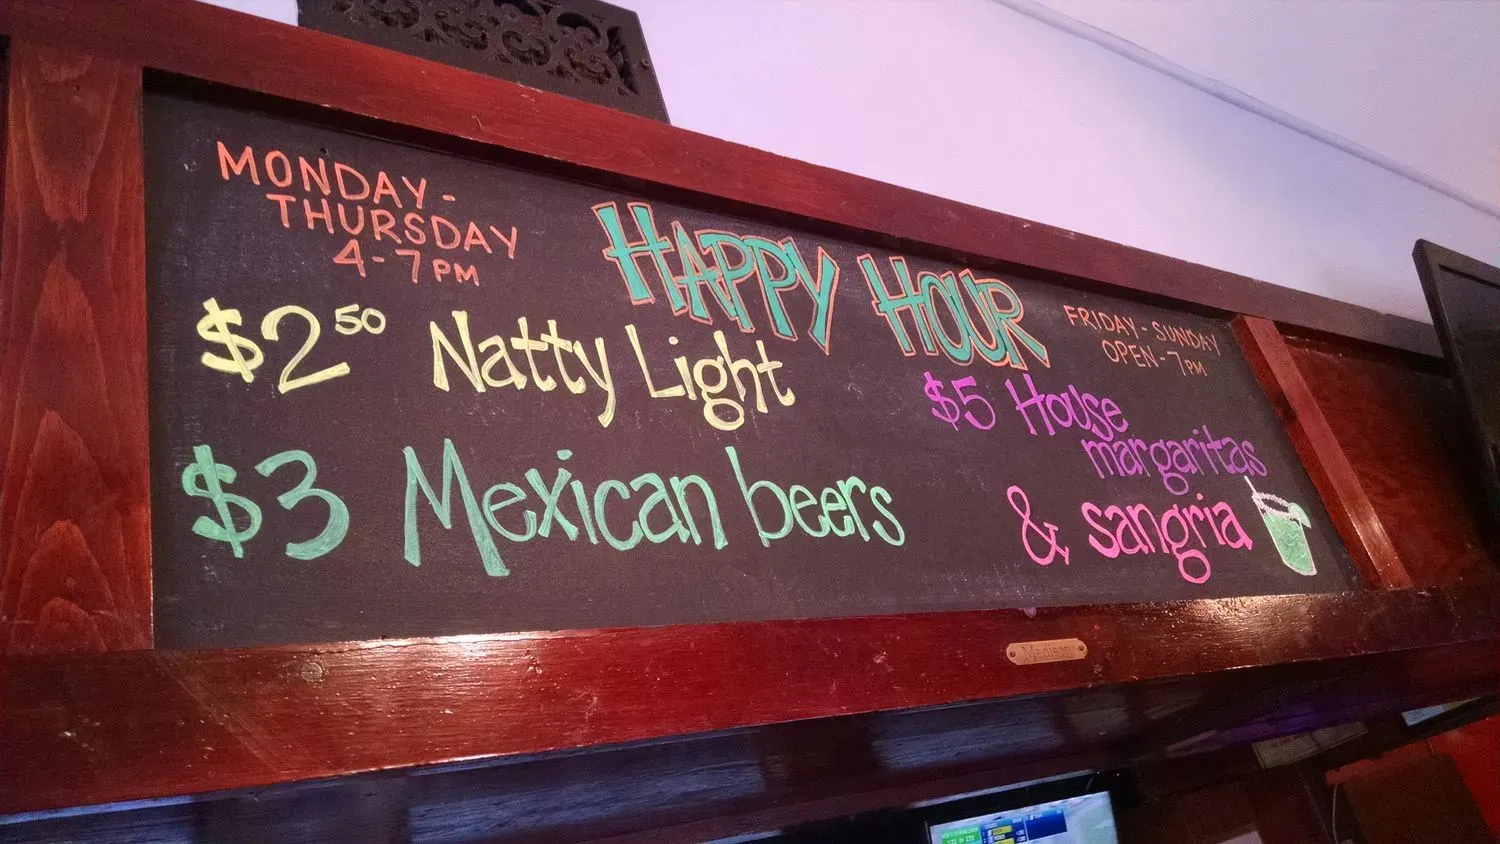 MONDAY-
THURSDAY
4-7PM
HAPPY HOUR
FRIDAY-SUNDAY
OPEN-7PM
$250 Natty Light
$3 Mexican beers
$5 House
margaritas
& sangria
Madison